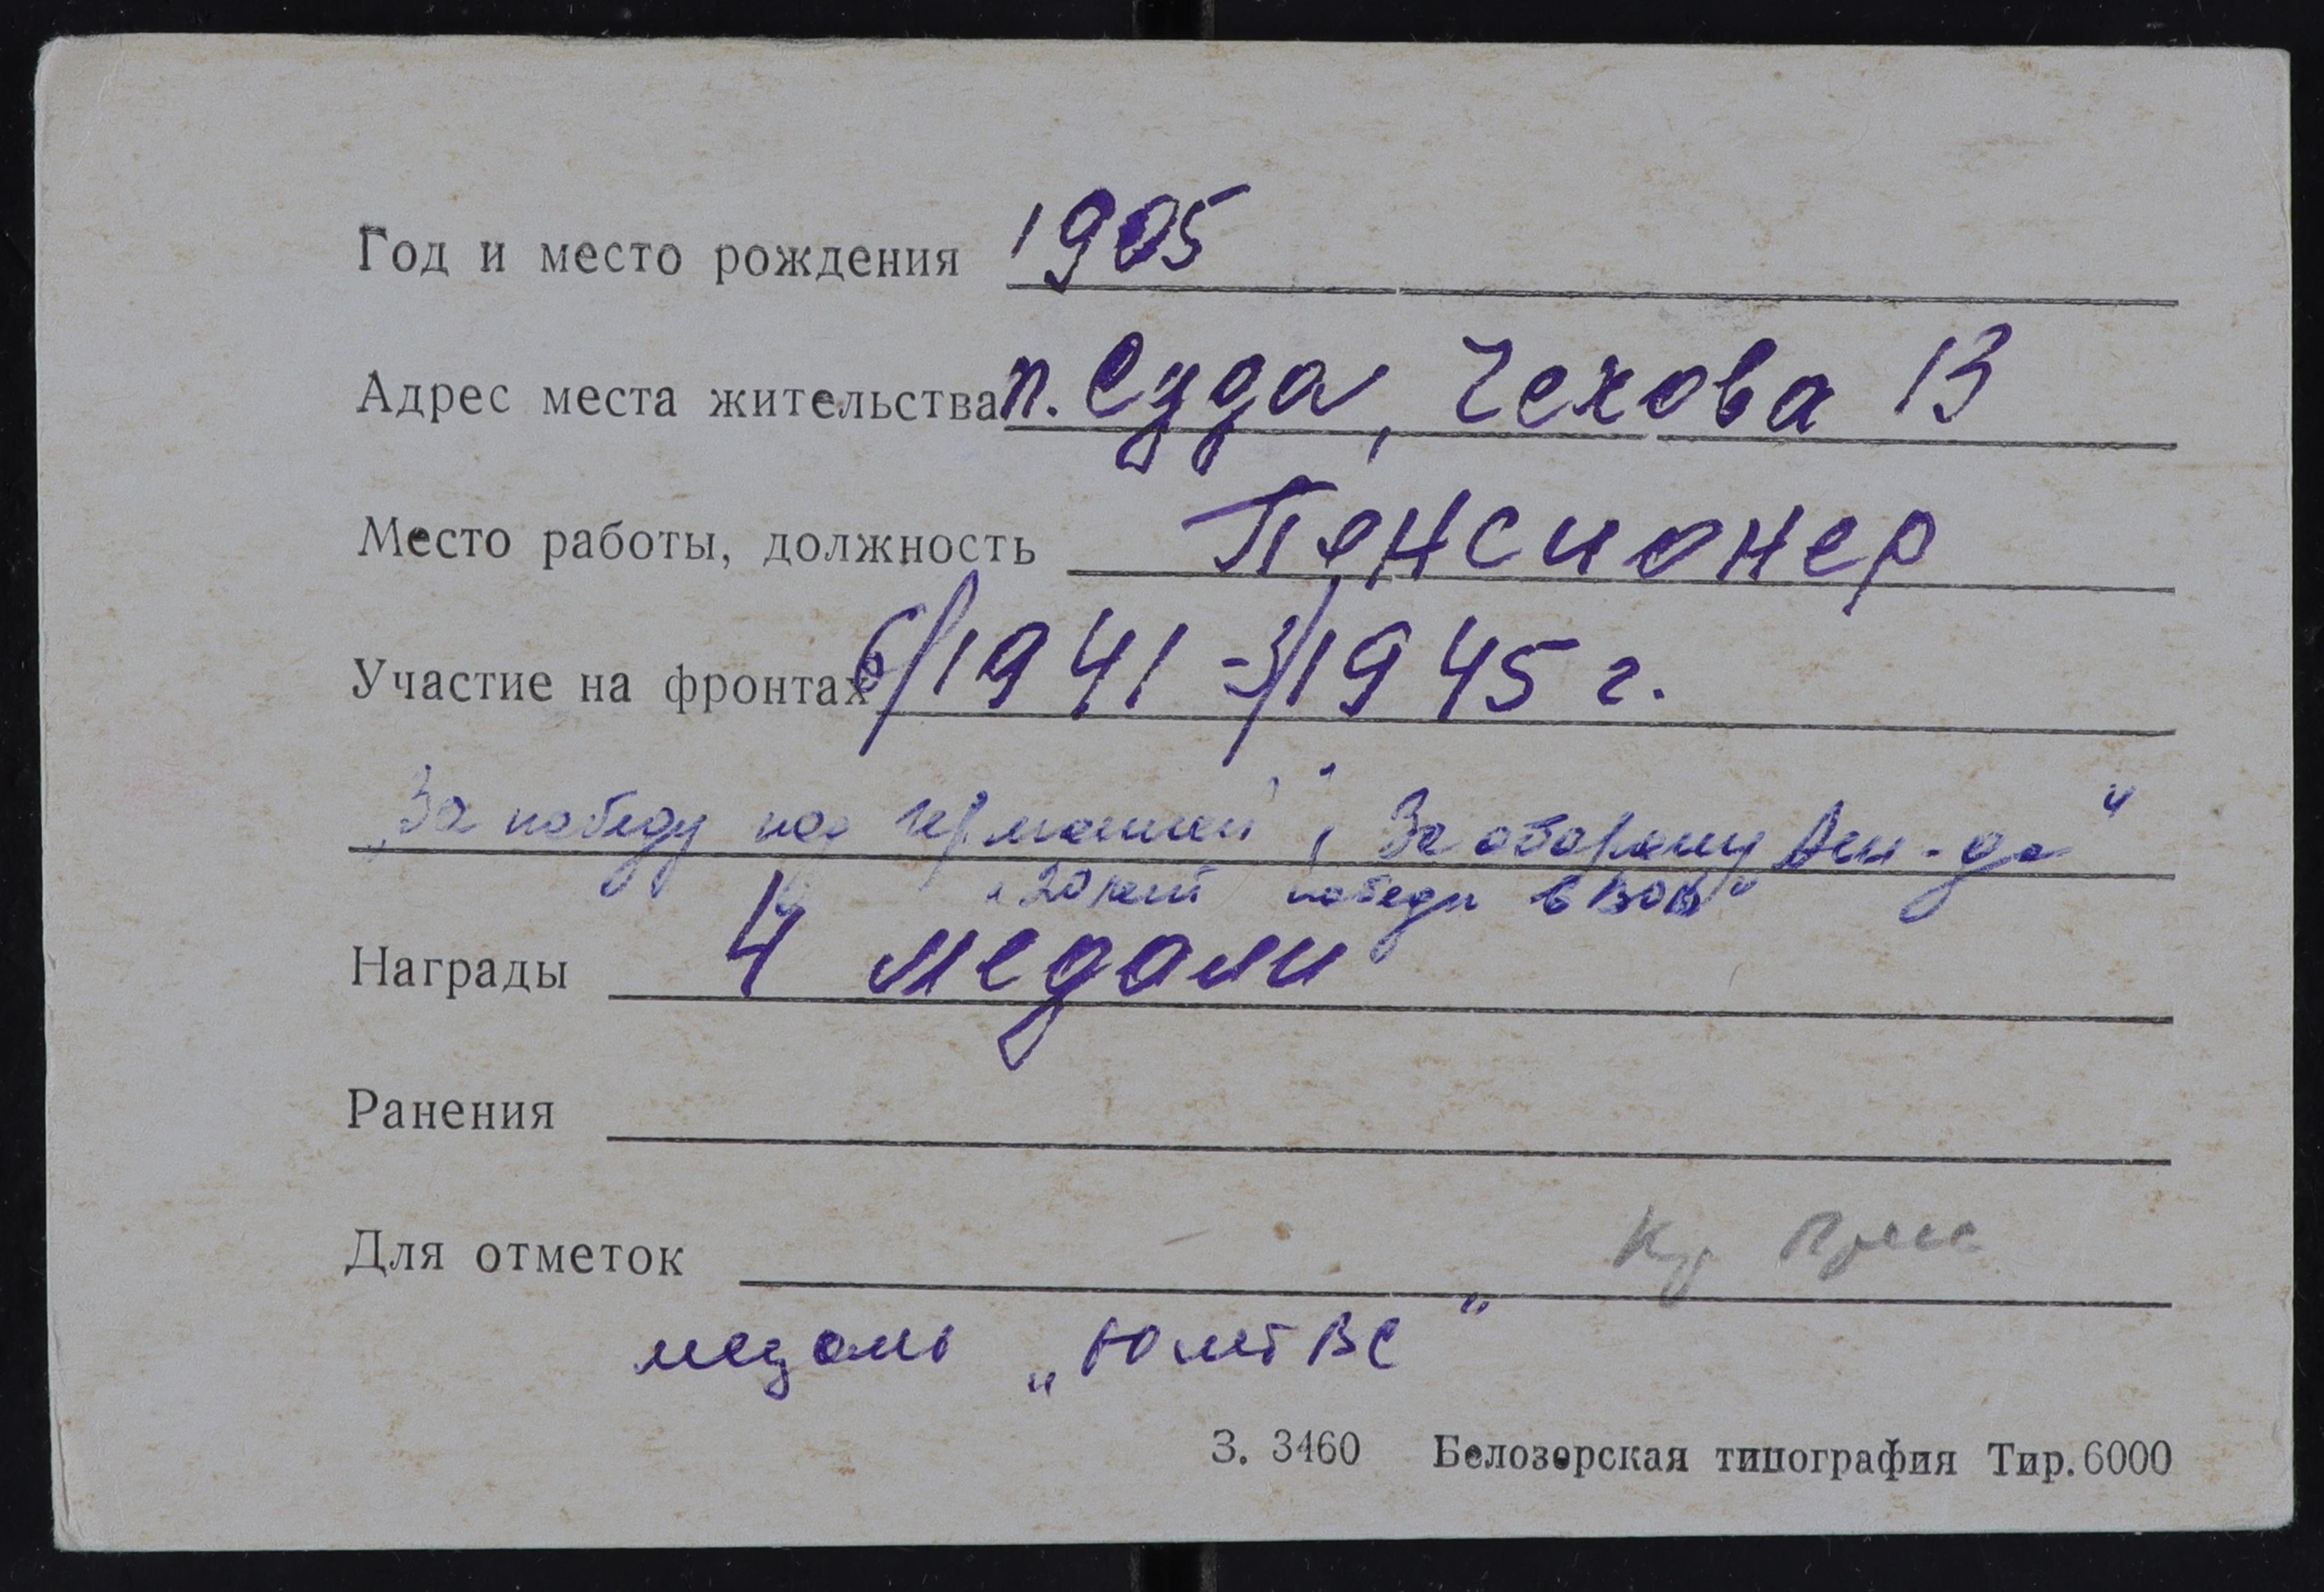 Год и место рождения 1905
Адрес места жительства п. Суда, Чехова 13
Место работы, должность Пенсионер
Участие на фронтах 6/1941 - 3/1945 г.
„За победу над Германией", „За оборону Лен-да"
„20 лет победы в ВОВ"
Награды 4 медали
Ранения
Для отметок
медаль „ ВС"
З. 3460 Белозерская типография Тир. 6000